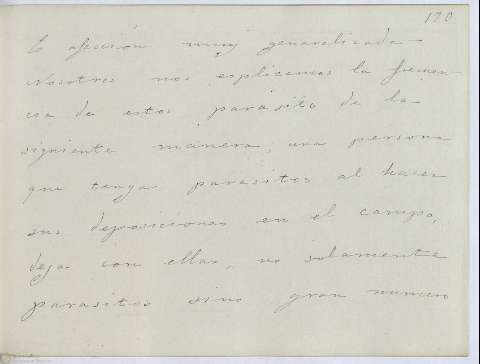 170
E afección muy generalizada
Nosotros nos esplicamos la frecuen-
cia de estos parásito de la
siguiente manera, una persona
que tenga parasitos al hacer
sus deposiciones en el campo,
deja con ellas, no solamente
parasitos sino gran numero